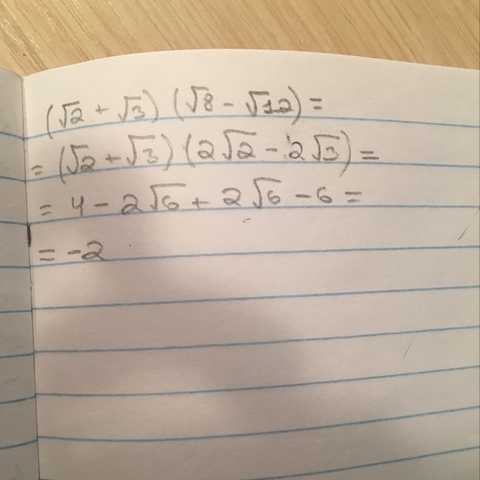 (√2 + √3) (√8 - √12) =
= (√2 + √3) (2√2 - 2√3) =
= 4 - 2√6 + 2√6 - 6 =
= -2